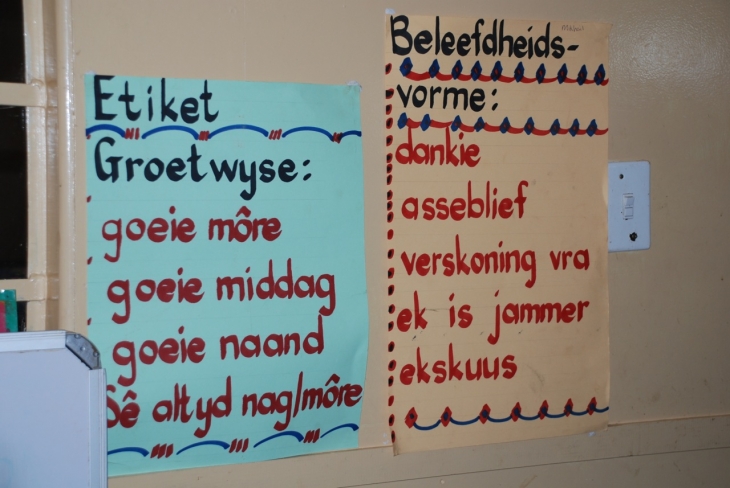 Etiket
Groetwyse:
goeie môre
goeie middag
goeie naand
Sê altyd nag/môre
Beleefdheids-
vorme:
dankie
asseblief
verskoning vra
ek is jammer
ekskuus